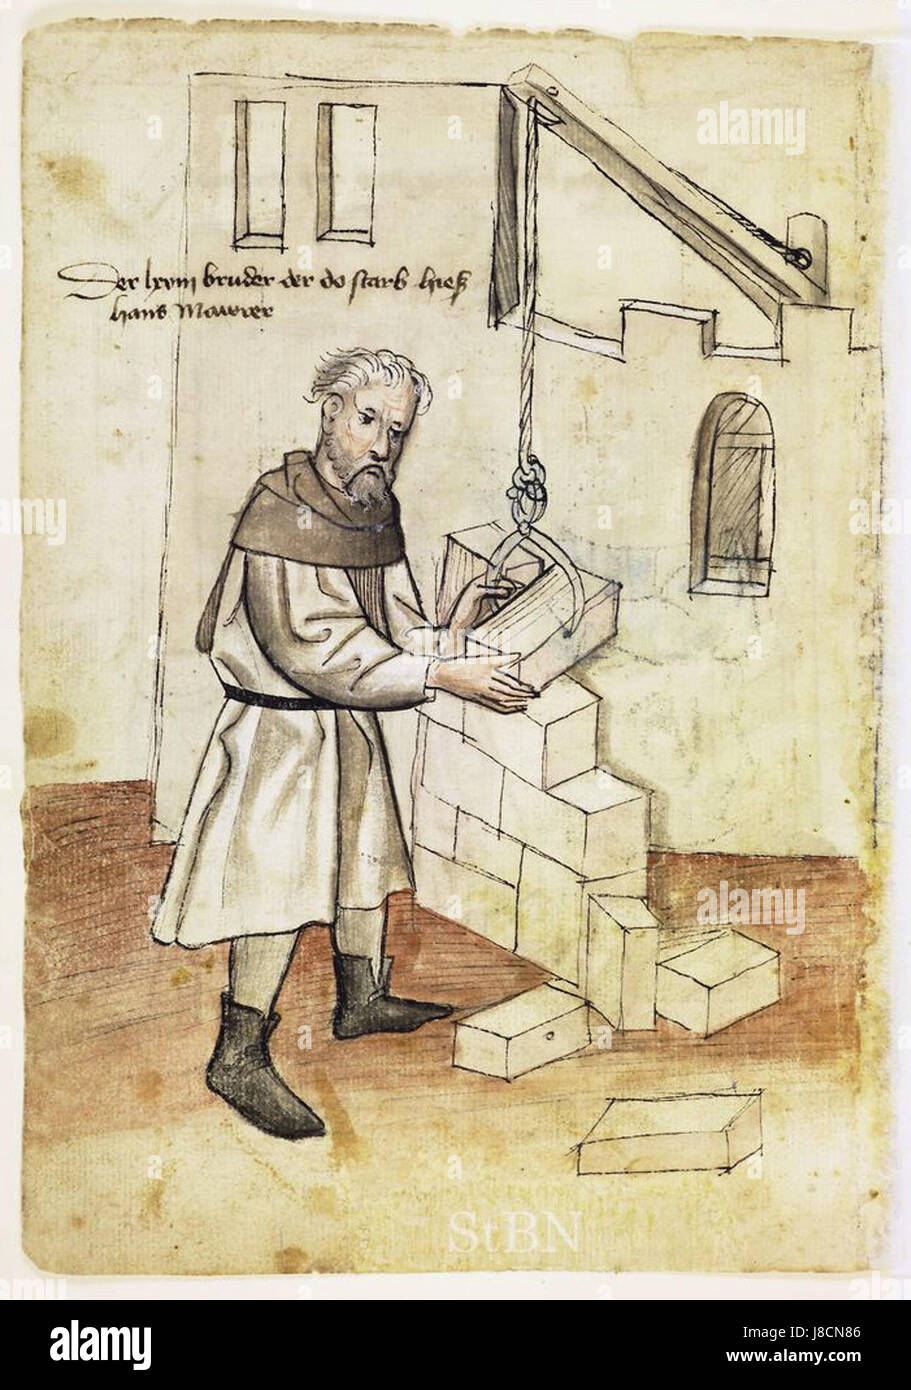 Der lxviii bruder der do starb hieß
hans Mawrer
StBN
alamy
Image ID: J8CN86
www.alamy.com